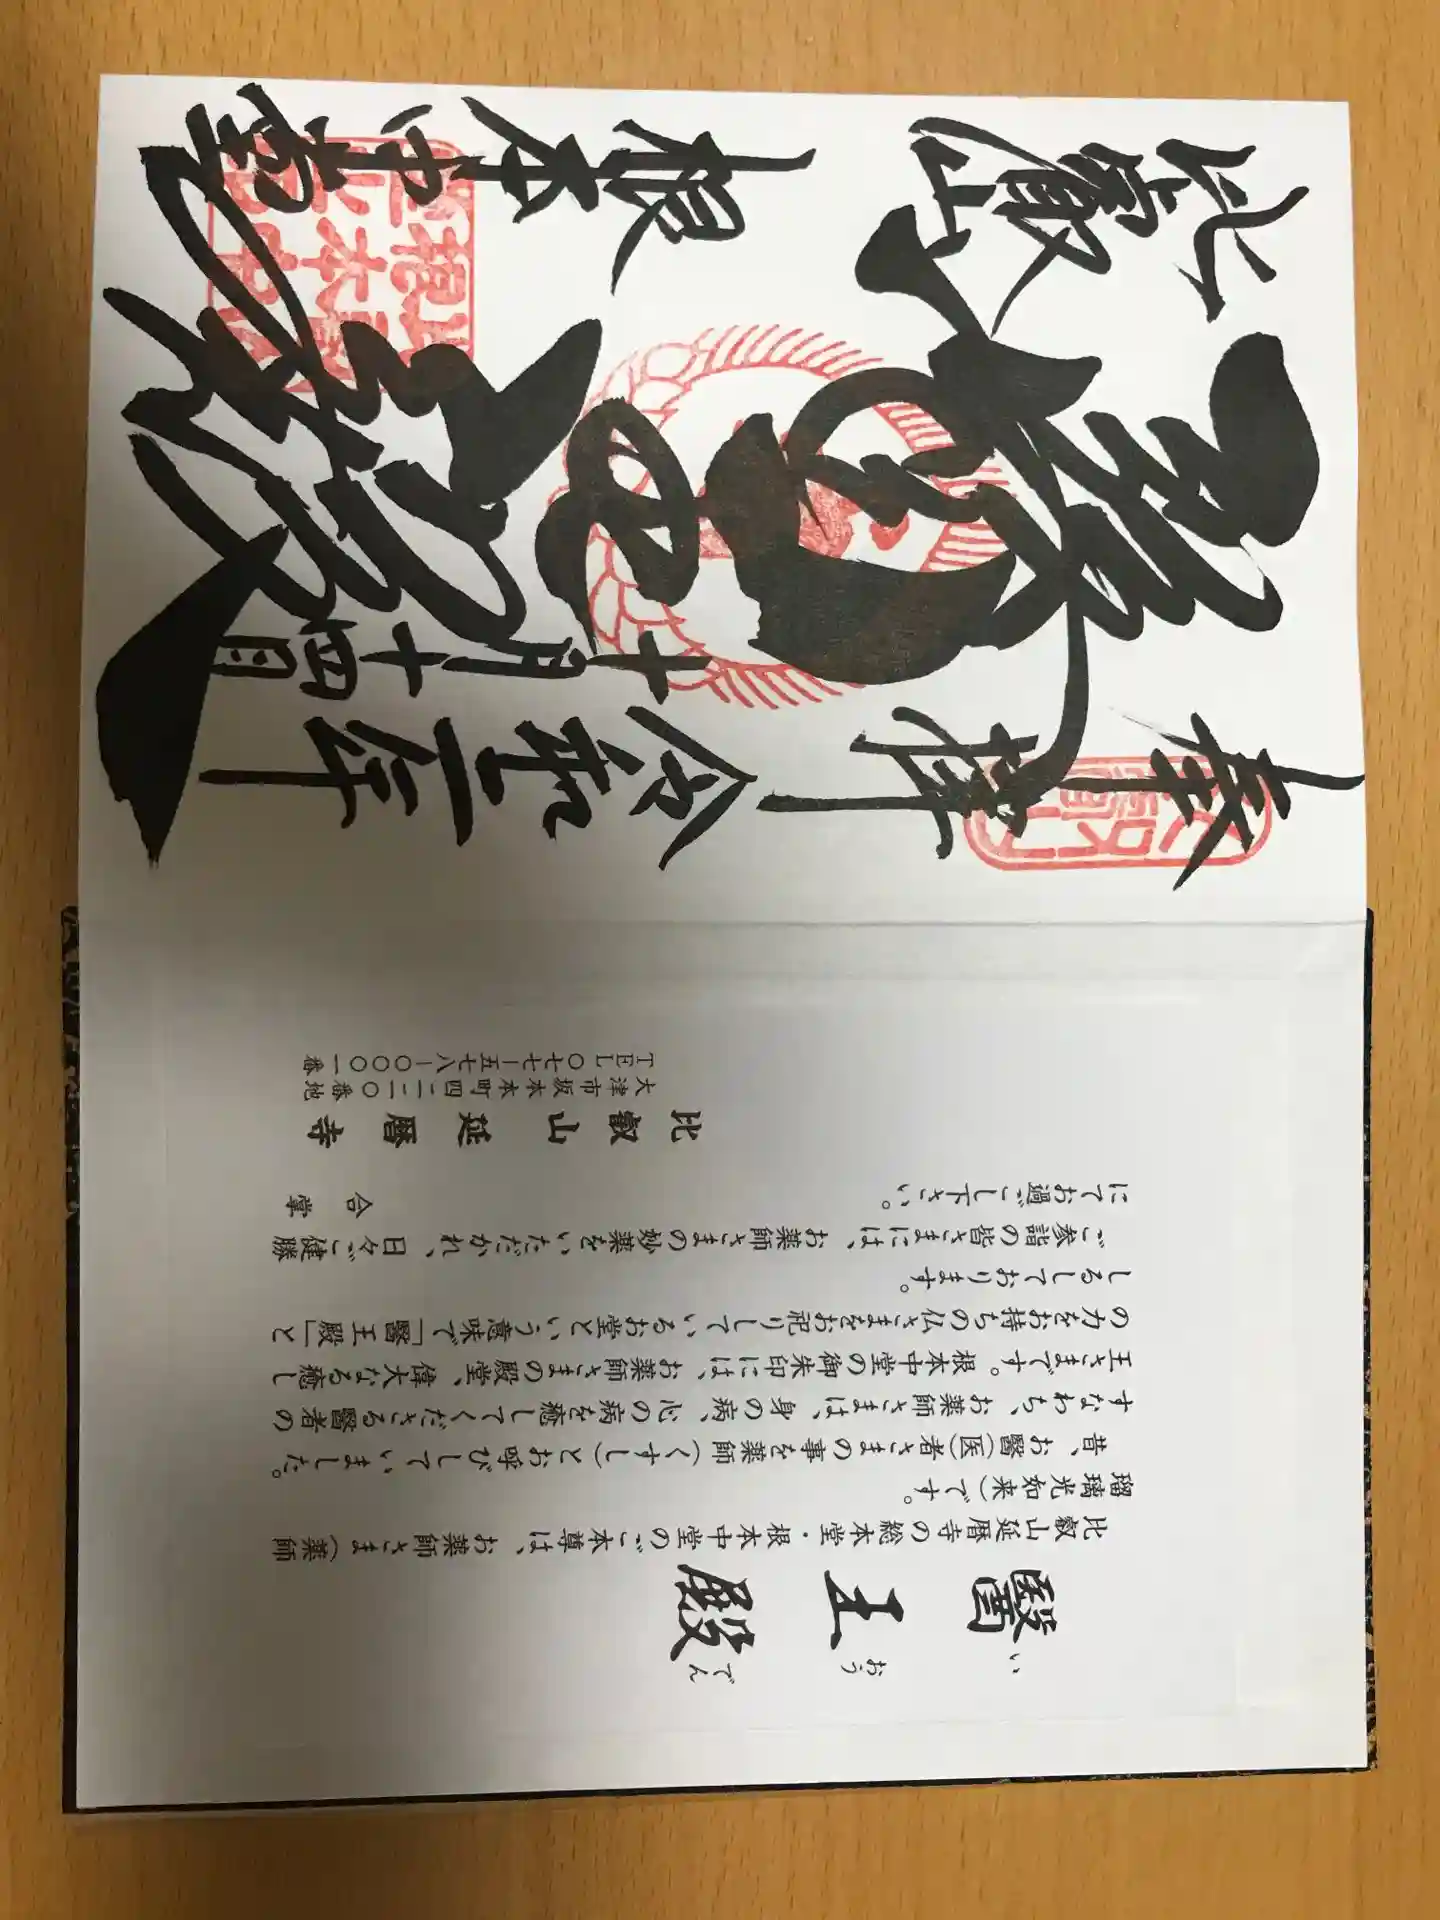 い おう でん
醫王殿
比叡山延暦寺の総本堂・根本中堂のご本尊は、お薬師さま(薬師
瑠璃光如来)です。
昔、お醫(医)者さまの事を薬師(くすし)とお呼びしていました。
すなわち、お薬師さまは、身の病、心の病を癒してくださる醫者の
王さまです。根本中堂の御朱印には、お薬師さまの殿堂、偉大なる癒し
の力をお持ちの仏さまをお祀りしているお堂という意味で「醫王殿」と
しるしております。
ご参詣の皆さまには、お薬師さまの妙薬をいただかれ、日々ご健勝
にてお過ごし下さい。
合掌
比叡山延暦寺
大津市坂本本町四二二〇番地
TEL〇七七ー五七八ー〇〇〇一番
奉拝
令和二年
十月十四日
醫王殿
比叡山
根本中堂